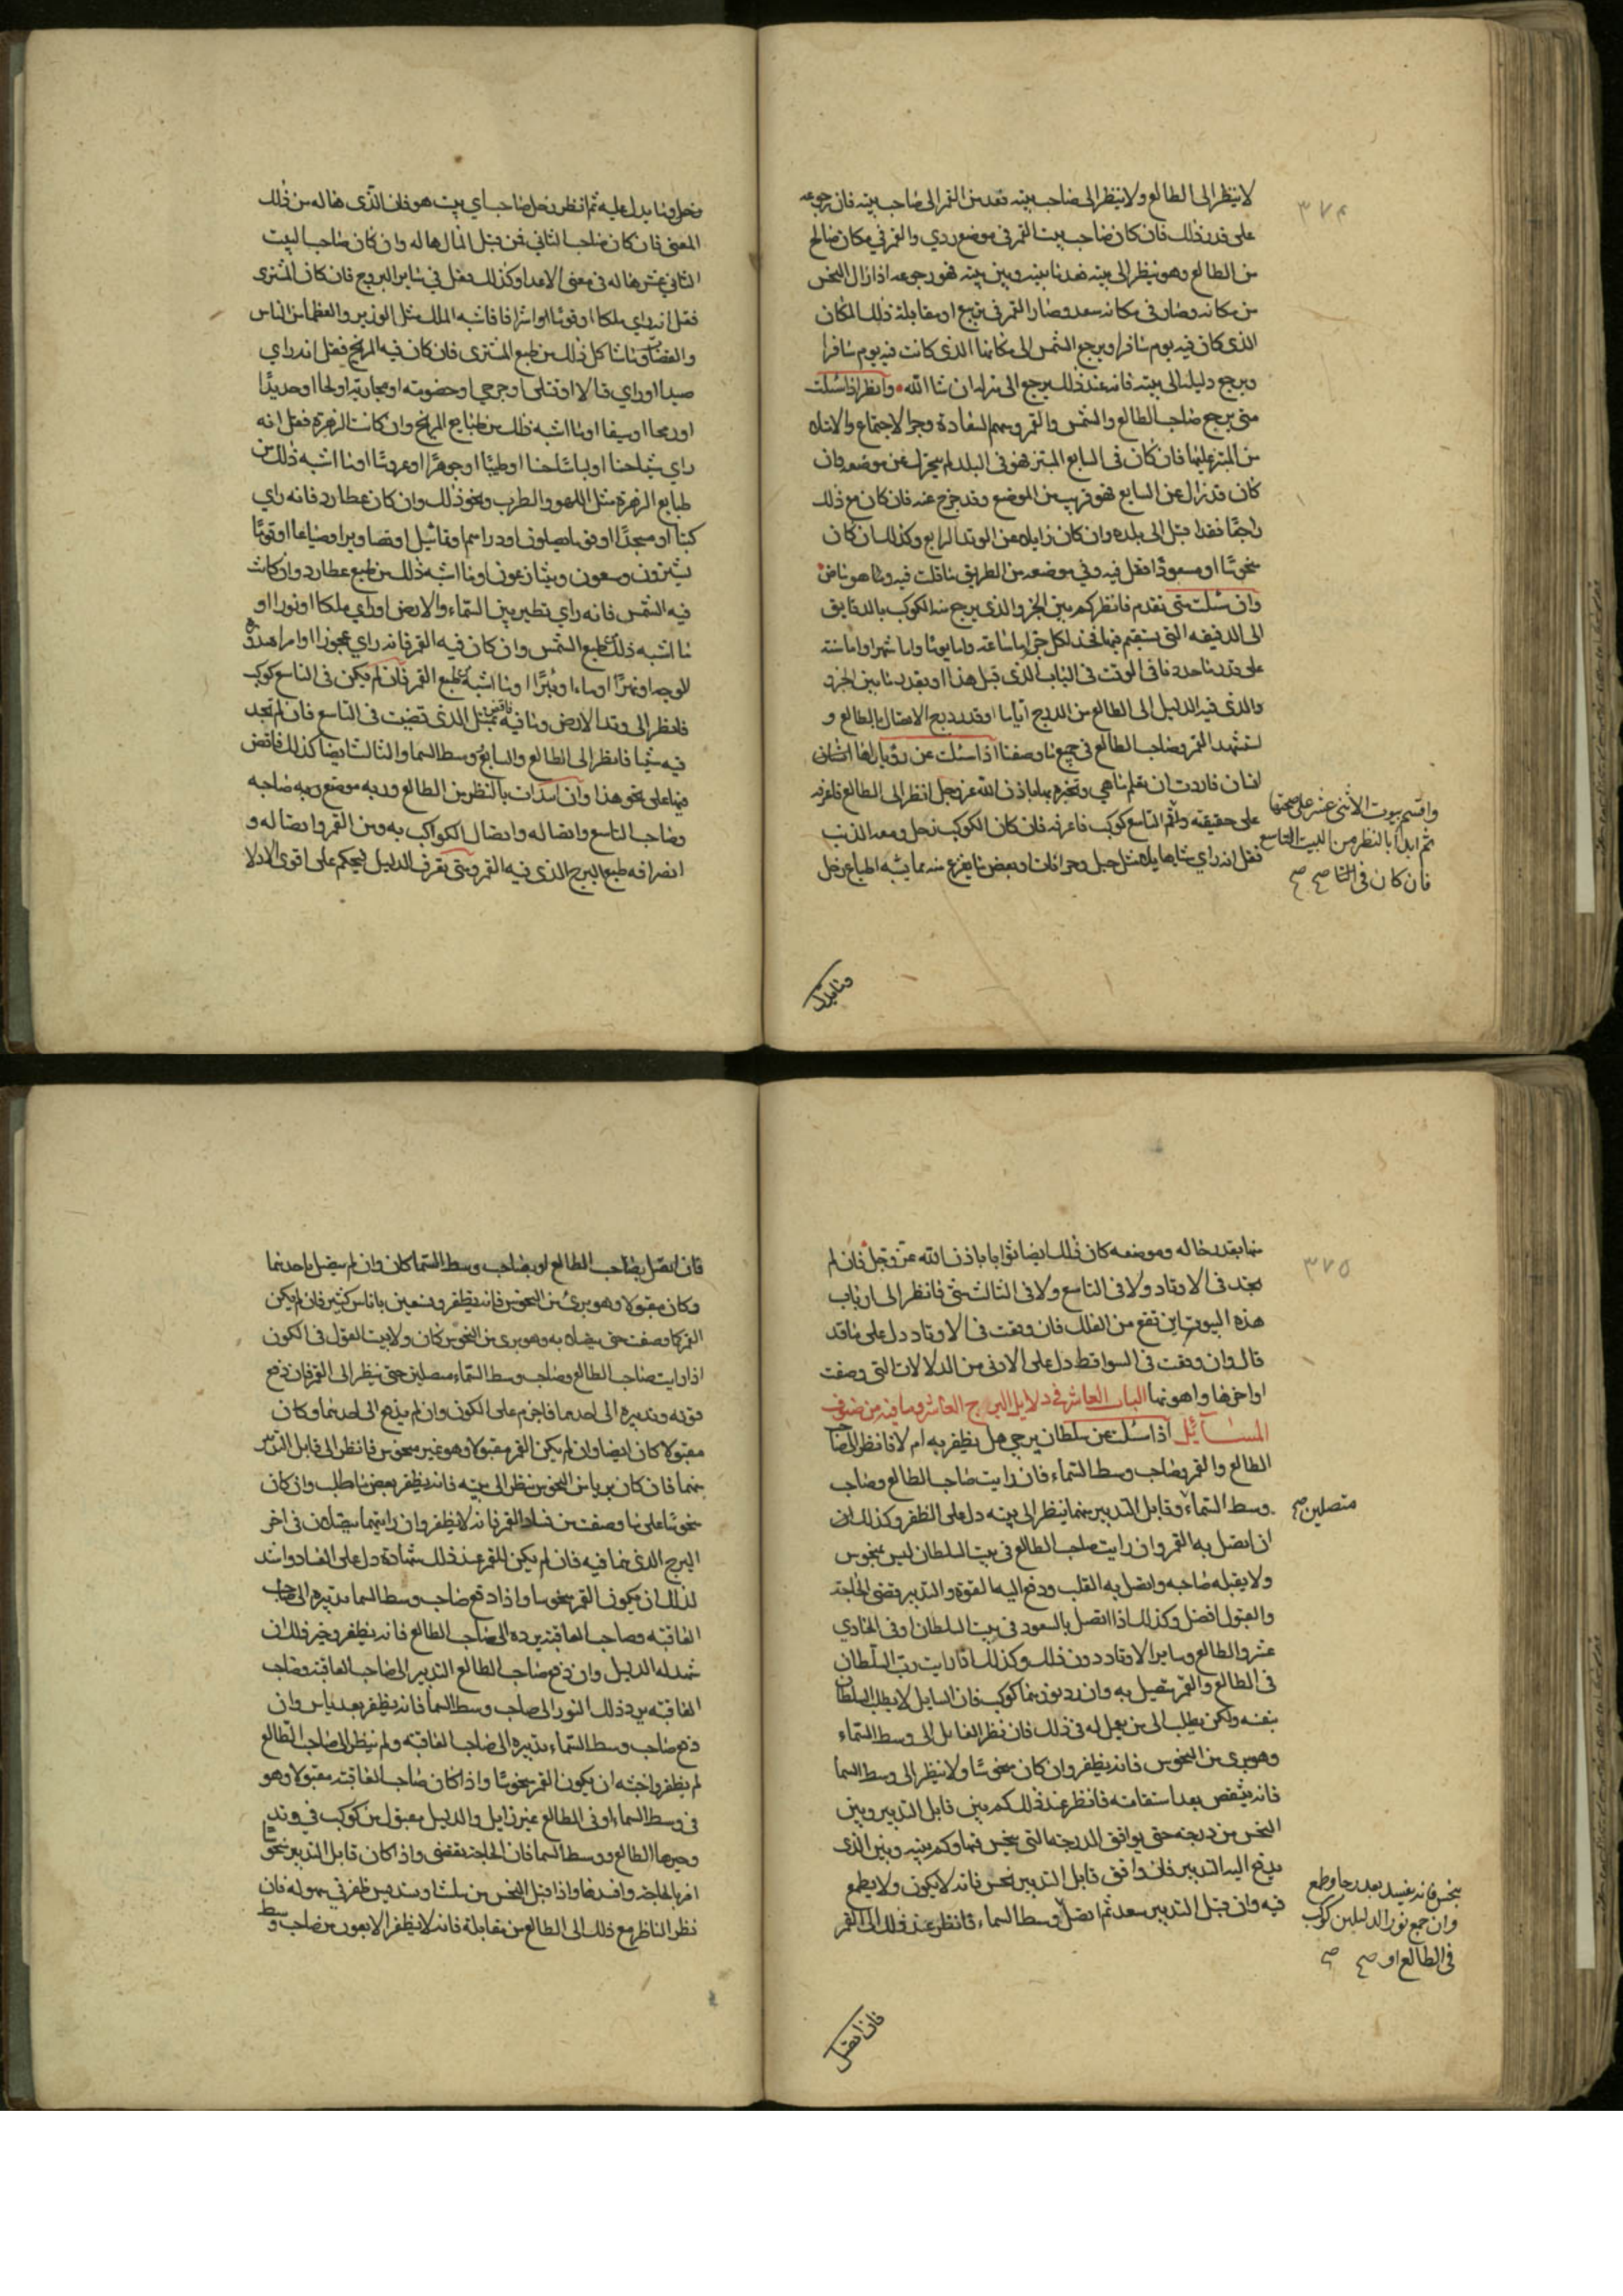 ٣٧٤
لا ينظر الى الطالع ولا ينظر الى صاحب بيته فقد من القمر الى صاحب بيته فان رجوعه
على قدر ذلك فان كان صاحب بيت القمر في موضع ردي والقمر في مكان صالح
من الطالع وهو ينظر الى بيته فقد ما بينه وبين بيته فهو رجوعه اذا زال النحس
من مكانه وصار في مكانه سعد وصار القمر في تربيع او مقابلة ذلك المكان
الذي كان فيه يوم سافر او يرجع الشمس الى مكانها الذي كانت فيه يوم سافر
ويرجع دليله الى بيته فانه عند ذلك يرجع الى منزله ان شا الله وانظر اذا سئلت
متى يرجع صاحب الطالع والشمس والقمر وسهم السعادة وجزا لاجتماع والامتلا
من المبتز عليها فان كان في السابع المبتز فهو في البلد لم يتحرك عن موضعه وان
كان قد زال عن السابع فهو قريب من الموضع وقد خرج عنه فان كان مع ذلك
راجعًا فقد اقبل الى بلده وان كان زايلا عن الوتد الرابع وكذلك ان كان
منحوسًا او مسعودًا فقل فيه وفي موضعه من الطريق ما قلت فيه وما هو ماض
وان سئلت متى تقدم فانظر كم بين الجزو الذي يرجع منه الكوكب بالدقايق
الى الدقيقه التي يستقيم فيها فخذ لكل جزو اما ساعة واما يومًا واما شهرا واما سنة
على قدر ما حددنا في الوقت في الباب الذي قبل هذا او بقدر ما بين الجزو
والذي فيه الدليل الى الطالع من الدرج اياما او قدر درج الاتصال بالطالع و
استشهد القمر وصاحب الطالع في جميع ما وصفنا اذا سئلت عن رؤيا راها انسان
لنسان فاردت ان تعلم ما هي وتخبره بها باذن الله عز وجل انظر الى الطالع فاعرفه
على حقيقته واقم التاسع كوكب فاعرفه فان كان الكوكب زحل ومعه الذنب
فقل انه راي شيا هايلا مثل جبل وحر انسان وبعض ما يفزع منه مما يشبه الطباع زحل
واقسم بيوت الاثنى عشر على صحتها
ثم ابدا بالنظر من البيت التاسع
فان كان في التا صح صح
وما يدل
زحل وما يدل عليه ثم انظر زحل صاحب اي بيت هو فان الذي هاله من ذلك
المعنى فان كان صاحب الثاني فمن قبل المال هاله وان كان صاحب البيت
الثاني عشر هاله في معنى الاعدا وكذلك فقل في ساير البروج فان كان المشترى
فقل انه راي ملكا او قوما اشرافا اشبه الملك مثل الوزير والعظما من الناس
والقضاة وما شاكل ذلك من طبع المشترى فان كان فيه المريخ فقل انه راي
صيدا او راي قتالا او قتلى او جرحى او خصومة او محاربة او لحما او حديدًا
او رمحا او سيفا او ما اشبه ذلك من طبايع المريخ وان كانت الزهرة فقل انه
راي شيا حسنا او لباسا حسنا او طيبًا او جوهرًا او عروسًا او ما اشبه ذلك من
طبايع الزهرة مثل اللهو والطرب ونحو ذلك وان كان عطارد فانه راي
كتبا او مسجدًا او قوما يصلون او دراهم او تماثيل او تصاوير او ضياعا او قومًا
يشترون وبيعون ويتنازعون او ما اشبه ذلك من طبع عطارد وان كانت
فيه الشمس فانه راي نظير بين السماء والارض او راي ملكا او نورا او
ما اشبه ذلك من طبع الشمس وان كان فيه القمر فانه راي عجوزا او امراة هدوة
الوجه او نهرًا او ماء او بئرًا او ما اشبه من طبع القمر فان لم يكن في التاسع كوكب
فانظر الى وتد الارض وما فيه فاقض بمثل الذي قضيت في التاسع فان لم تجد
فيه شيا فانظر الى الطالع والسابع ووسط السما والثالث ايضا كذلك فاقض
فيها على نحو هذا وان اردت بالنظر من الطالع وربه موضع ربه صاحبه
وصاحب التاسع واتصاله واتصال الكواكب به ومن القمر واتصاله و
انصرافه طبع البرج الذي فيه القمر ومتى تعرف الدليل فتحكم على اقوى الادلا
٣٧٥
منها بقدر حاله وموضعه كان ذلك ايضا ثوابا باذن الله عز وجل فان لم
تجد في الاوتاد ولا في التاسع ولا في الثالث شى فانظر الى ارباب
هذه البيوت اين تقع من الفلك فان وقعت في الاوتاد دل على ما قد
قال وان وقعت في السواقط دل على الادنى من الدلالات التي وصفت
او اخزها واهونها الباب العاشر في دلايل البرج العاشر وما فيه من صنوف
المسايل اذا سئلت عن سلطان يرجى هل يظفر به ام لا فانظر الى صاحب
الطالع والقمر وصاحب وسط السماء فان رايت صاحب الطالع وصاحب
وسط السماء وقابل التدبير منهما ينظر الى بيته دل على الظفر وكذلك ان
ان اتصل به القمر وان رايت صاحب الطالع في بيت السلطان ليس بمنحوس
ولا يقبله صاحبه واتصل به القلب ودفع اليه القوة والتدبير قضى الحاجة
والقبول افضل وكذلك اذا اتصل بالسعود في بيت السلطان او في الحادي
عشر والطالع وساير الاوتاد دون ذلك وكذلك اذا رايت رب السلطان
في الطالع والقمر متصل به وان رد نورهما كوكب فان السايل لا يطلب السلطان
بنفسه ولكن يطلب الى من يعمل له في ذلك فان نظر القابل الى وسط السماء
وهو بري من النحوس فانه يظفر وان كان منحوسًا ولا ينظر الى وسط السما
فانه ينتقض بعد استقامته فانظر عند ذلك كم بين قابل التدبير وبين
النحس من درجته حتى يوافق الدرجة التي ينحس فيها وكم بينه وبين الذي
يدفع اليه التدبير فان وافق قابل التدبير نحس فانه لا يكون ولا يطمع
فيه وان قبل التدبير سعد ثم اتصل وسط السماء فانظر عند ذلك الى القمر
متصلين صح
بنحس فانه يفسد بعد رجا وطمع
وان جمع نور الدليلين كوكب
في الطالع او صح صح
فان اتصل
فان اتصل بصاحب الطالع او بصاحب وسط السماء كان وان لم يتصل باحدهما
وكان مقبولا وهو بريء من النحوس فانه يظفر ويستعين باناس كثير فان لم يكن
القمر كما وصفت حتى يتصل به وهو بري من النحوس كان ولا يبت القول في الكون
اذا رايت صاحب الطالع وصاحب وسط السماء متصلين حتى ينظر الى القمر فان دفع
قوته وتدبيره الى احدهما فاجزم على الكون وان لم يدفع الى احدهما وكان
مقبولا كان ايضا وان لم يكن القمر مقبولا وهو غير منحوس فانظر الى قابل التدبير
منهما فان كان بريا من النحوس ينظر الى بيته فانه يظفر ببعض ما طلب وان كان
منحوسًا على ما وصفت من فساد القمر فانه لا يظفر وان رايتهما يتصلان في اخر
البرج الذي هما فيه فان لم يكن للقمر عند ذلك شهادة دل على الفساد واشد
لذلك ان يكون القمر منحوسا واذا دفع صاحب وسط السما تدبيره الى صاحب
العاقبه وصاحب العاقبة يرده الى صاحب الطالع فانه يظفر وخير ذلك ان
شهد له الدليل وان دفع صاحب الطالع التدبير الى صاحب العاقبة وصاحب
العاقبة يرد ذلك النور الى صاحب وسط السما فانه يظفر بعد ياس وان
دفع صاحب وسط السماء تدبيره الى صاحب العاقبة ولم ينظر الى صاحب الطالع
لم يظفر واخبثه ان يكون القمر منحوسًا واذا كان صاحب العاقبة مقبولا وهو
في وسط السماء او في الطالع غير زايل والدليل مقبول من كوكب في وتد
وخيرها الطالع ووسط السما فان الحاجة تقضى واذا كان قابل التدبير منحوسا
اضر بالحاجة وافسدها واذا قبل النحس من تثليث او تسديس ظفر في سهولة فان
نظر الناظر مع ذلك الى الطالع من مقابلة فانه لا يظفر الا بعون من صاحب وسط